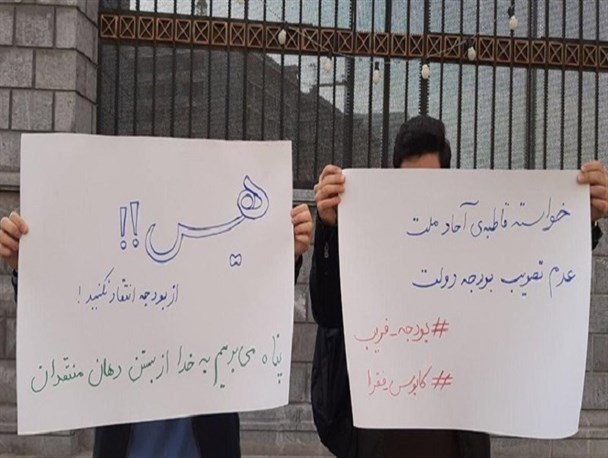 خواسته قاطبه‌ی آحاد ملت
عدم تصویب بودجه دولت
#بودجه_فریب
#کابوس_یقرا
هیس!!
از بودجه انتقاد نکنید!
پناه می‌بریم به خدا از بستن دهان منتقدان